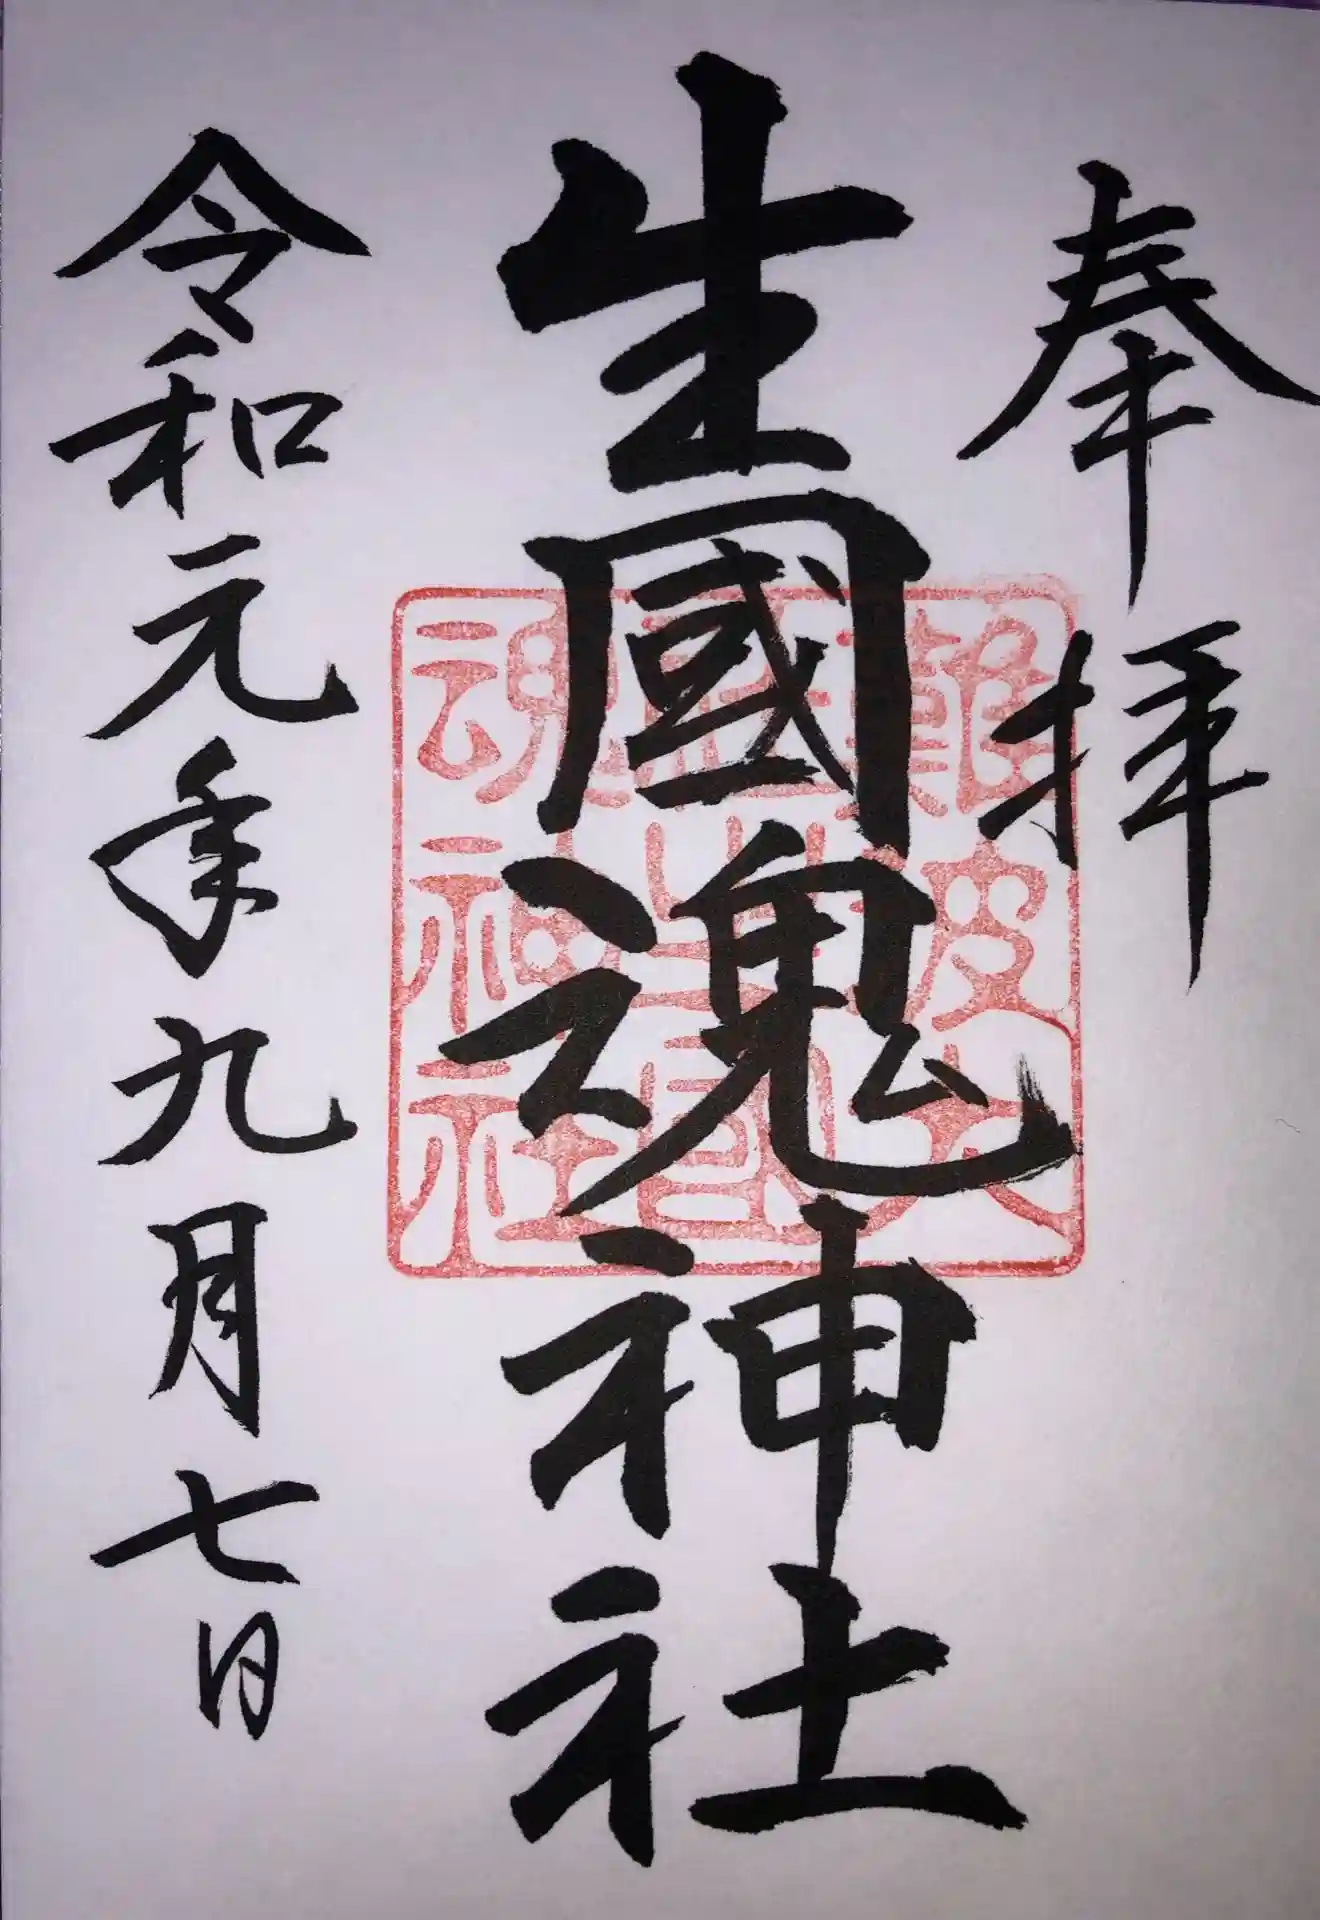 奉拝
生國魂神社
難波大
社生國
魂神社
令和元年九月七日